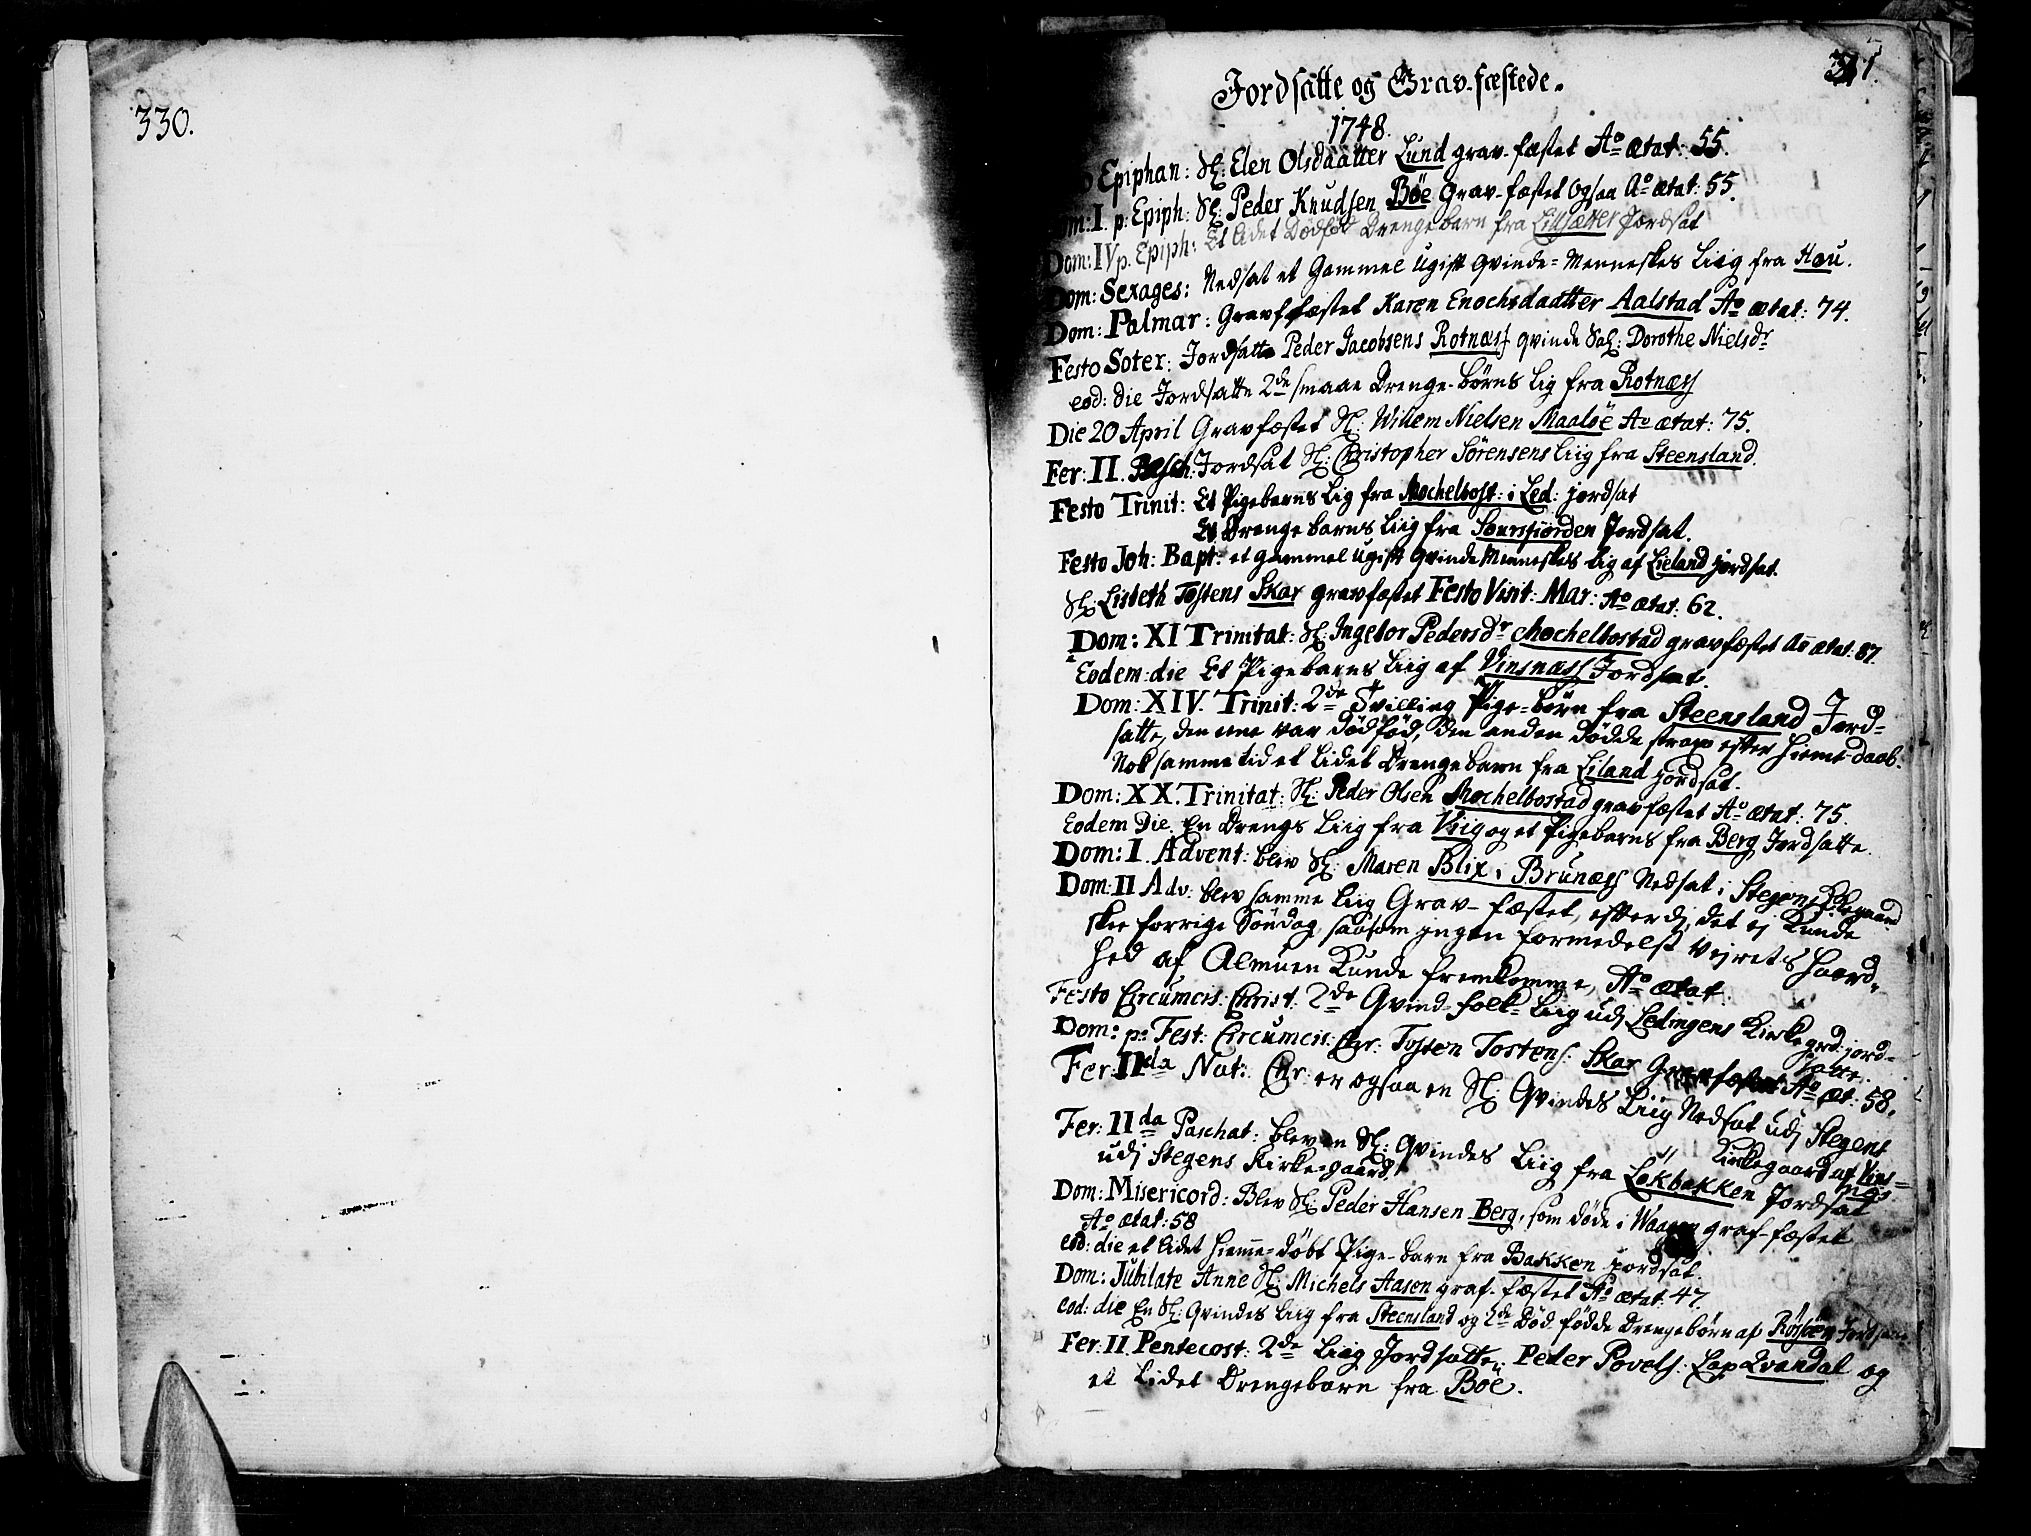 330.
331.
Jordsatte og Grav-fæstede.
1748.
Epiphan: Sl: Elen Olsdaatter Lund grav-fæstet Ao ætat: 55.
Dom: I. p. Epiph: Sl: Peder Knudsen Böe Grav-fæstet ogsaa Ao ætat: 55.
Dom: IV p. Epiph: Et lidet Dödföt Drengebarn fra Lilsætter Jordsat
Dom: Sexages: Nedsat et Gammel ugift Qvinde-Menneskes Liig fra Hou.
Dom: Palmar: Gravfæstet Karen Enochsdaatter Aalstad Ao ætat: 74.
Festo Soter: Jordsatte Peder Jacobsens Rotnæss qvinde Sal: Dorothe Nielsdr
eod: die Jordsatte 2de smaae Drenge-börns lig fra Rotnæss
Die 20 April Gravfæstet Sl: Willem Nielsen Maalöe Ao ætat: 75.
Fer: II. Pasch: Jordsat Sl: Christopher Sörensens Liig fra Steensland.
Festo Trinit: Et Pigebarns Lig fra Mochelbost: i Led: jordsat
Et Drenge barns Liig fra Sourfiorden Jordsat.
Festo Joh: Bapt: et gammel ugift Qvinde Menneskes lig af Lieland jordsat.
Sl: Lisbeth Tostens Skar gravfæstet Festo Visit: Mar: Ao ætat: 62.
Dom: XI Trinitat: Sl: Ingebor Pedersdr Mochelbostad gravfæstet Ao ætat: 87.
Eodem die Et Pigebarns Liig af Vinsnæss Jordsat.
Dom: XIV. Trinit: 2de Tvilling Pige-börn fra Steensland Jord-
satte, den eene var dödföd, den anden dödde strax efter hieme-daab.
Nok samme tid et lidet Drengebarn fra Eiland jordsat.
Dom: XX. Trinitat: Sl: Peder Olsen Mochelbostad gravfæstet Ao ætat: 75.
Eodem Die. En Drengs Liig fra Viig og et Pigebarns fra Berg Jordsatte.
Dom: I. Advent: blev Sl: Maren Blix i Brunæss Nedsat i Stegens Kirkegaard
Dom: II Adv: blev samme Liig Grav-fæstet, efterdj det ej kunde
skee forrige Söndag, saasom ingen formedelst Vejrets Haard-
hed af Almuen kunde fremkomme, Ao ætat:
Festo Circumcis. Christ. 2de Qvind-folk-Liig udj Ledingens Kirke grd: jord-
satte.
Dom: p: Fest: Circumcis: Chr: Tosten Tostens: Skar Gravfæstet Ao æt: 58.
Fer: IIda Nat: Chr: er ogsaa en Sl: Qvindes Liig Nedsat udj Stegens
Kirkegaard af Vins-
næs
Fer: IIda Paschat: blev en Sl: Qvindes Liig fra Lökbakken Jordsat
udj Stegens Kirke-gaard.
Dom: Misericord: Blev Sl: Peder Hansen Berg, som döde i Waagen graf-fæstet
Ao ætat: 58
eod: die et lidet hieme-döbt Pige-barn fra Bakken jordsat.
Dom: Jubilate Anne Sl: Michels Aasen graf-fæstet Ao ætat: 47.
eod: die En Sl: Qvindes Liig fra Steensland og 2de Död-födde Drengebörn af
Fer: II Pentecost: 2de Liig Jordsatte; Peder Povels: Lap Qvandal og
et Lidet Drengebarn fra Böe.